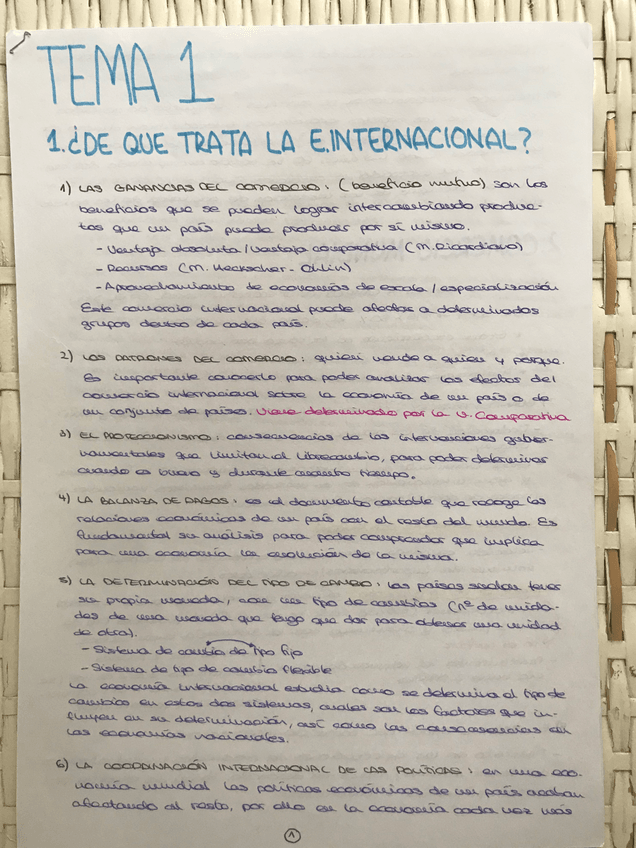 TEMA 1
1. ¿DE QUE TRATA LA E.INTERNACIONAL?
1) LAS GANANCIAS DEL COMERCIO: (beneficio mutuo) son los
beneficios que se pueden lograr intercambiando produc-
tos que un país puede producir por sí mismo.
- Ventaja absoluta / Ventaja comparativa (M. Ricardiano)
- Recursos (M. Heckscher - Ohlin)
- Aprovechamiento de economías de escala / especialización
Este comercio internacional puede afectar a determinados
grupos dentro de cada país.
2) LOS PATRONES DEL COMERCIO: quien vende a quien y porque.
Es importante conocerlo para poder analizar los efectos del
comercio internacional sobre la economía de un país o de
un conjunto de países. Viene determinado por la V. Comparativa
3) EL PROTECCIONISMO: consecuencias de las intervenciones guber-
namentales que limitan al librecambio, para poder determinar
cuando es bueno y durante cuanto tiempo.
4) LA BALANZA DE PAGOS: es el documento contable que recoge las
relaciones económicas de un país con el resto del mundo. Es
fundamental su análisis para poder comprender que implica
para una economía la evolución de la misma.
5) LA DETERMINACIÓN DEL TIPO DE CAMBIO: los países suelen tener
su propia moneda, con un tipo de cambios (nº de unida-
des de una moneda que tengo que dar para obtener una unidad
de otra).
- Sistema de cambio de tipo fijo
- Sistema de tipo de cambio flexible
La economía internacional estudia como se determina el tipo de
cambio en estos dos sistemas, cuales son los factores que in-
fluyen en su determinación, así como las consecuencias en
las economías nacionales.
6) LA COORDINACIÓN INTERNACIONAL DE LAS POLÍTICAS: en una eco-
nomía mundial las políticas económicas de un país acaban
afectando al resto, por ello en la economía cada vez más
1